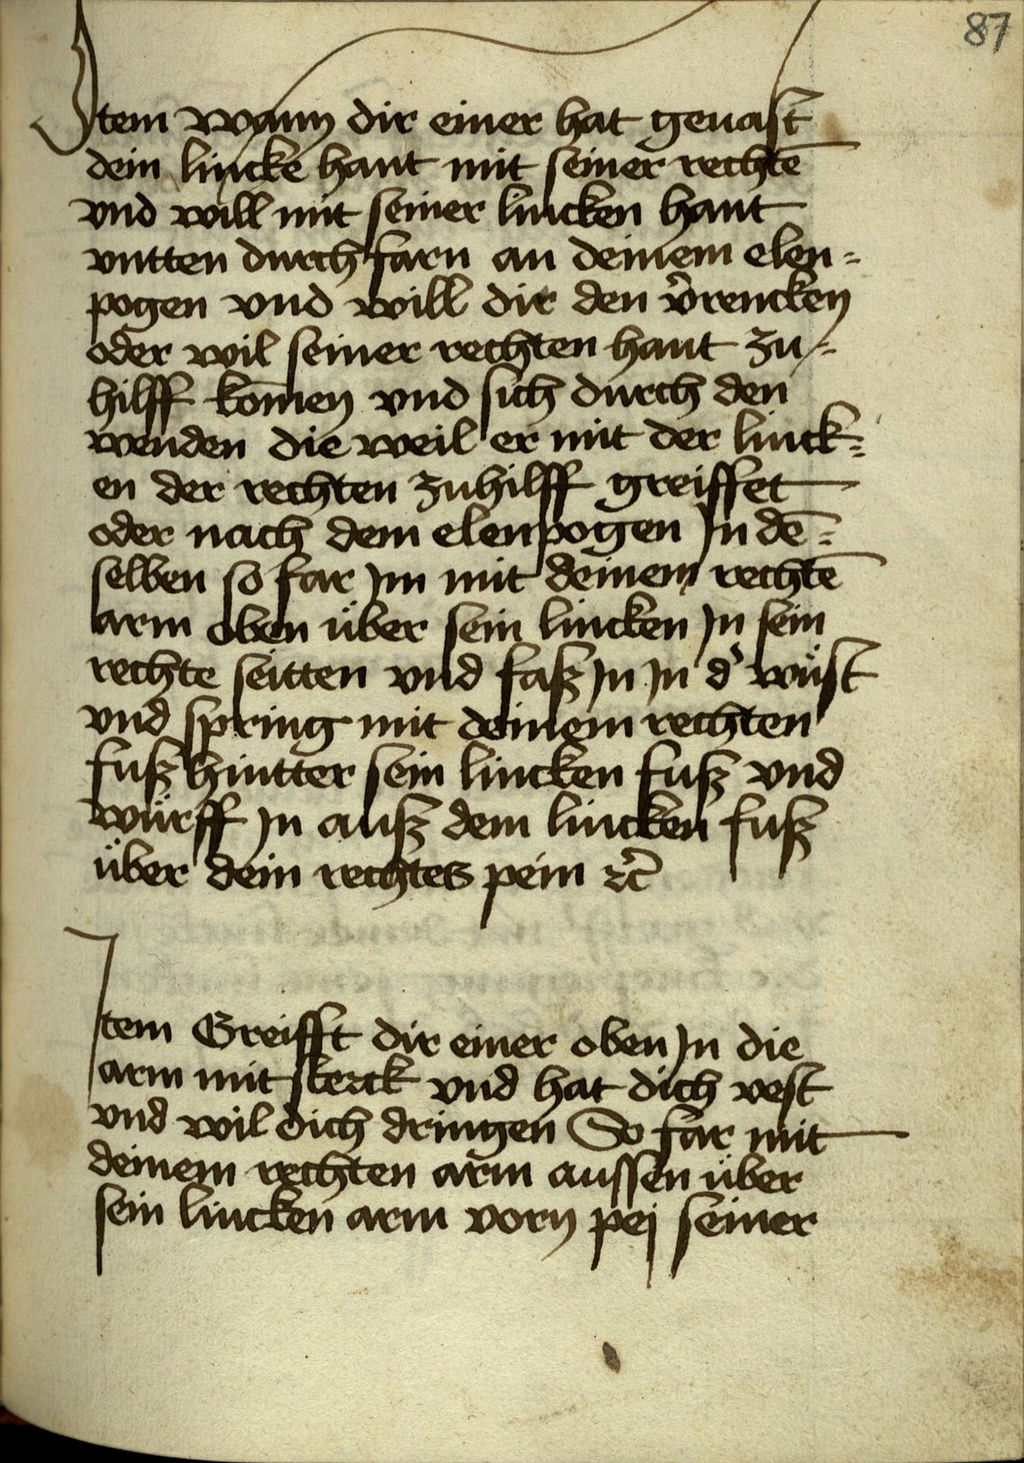 87
Item wann dir einer hat geuast
dein lincke hant mit seiner rechtē
vnd will mit seiner lincken hant
vntten durch farn an deinem elen=
pogen vnd will dir den v̄rencken
oder wil seiner rechten hant zu=
hilff komēn vnd sich durch den
wenden die weil er mit der linck=
en der rechten zuhilff greiffet
oder nach dem elenpogen Jn dē=
selben so far Jm mit deinem rechtē
arm oben über sein lincken Jn sein
rechte seitten vnd faß Jn Jn d' wüst
vnd spring mit deinem rechten
fuß hintter sein lincken fuß vnd
würff Jn auß dem lincken fuß
über dein rechtes pein ꝛc̄
Item Greifft dir einer oben Jn die
arm mit sterck vnd hat dich vest
vnd wil dich dringen So far mit
deinem rechten arm aussen über
sein lincken arm vorn pej seiner